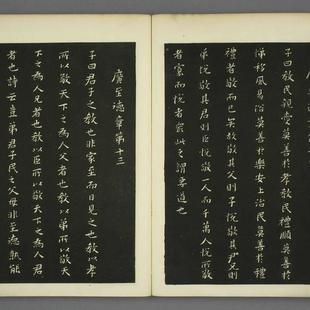 子曰教民親愛莫善於孝教民禮順莫善於
悌移風易俗莫善於樂安上治民莫善於禮
禮者敬而已矣故敬其父則子悅敬其兄則
弟悅敬其君則臣悅敬一人而千萬人悅所敬
者寡而悅者衆此之謂要道也
廣至德章第十三
子曰君子之教也非家至而日見之也教以孝
所以敬天下之為人父者也教以弟所以敬天
下之為人兄者也教以臣所以敬天下之為人君
者也詩云豈弟君子民之父母非至德孰能